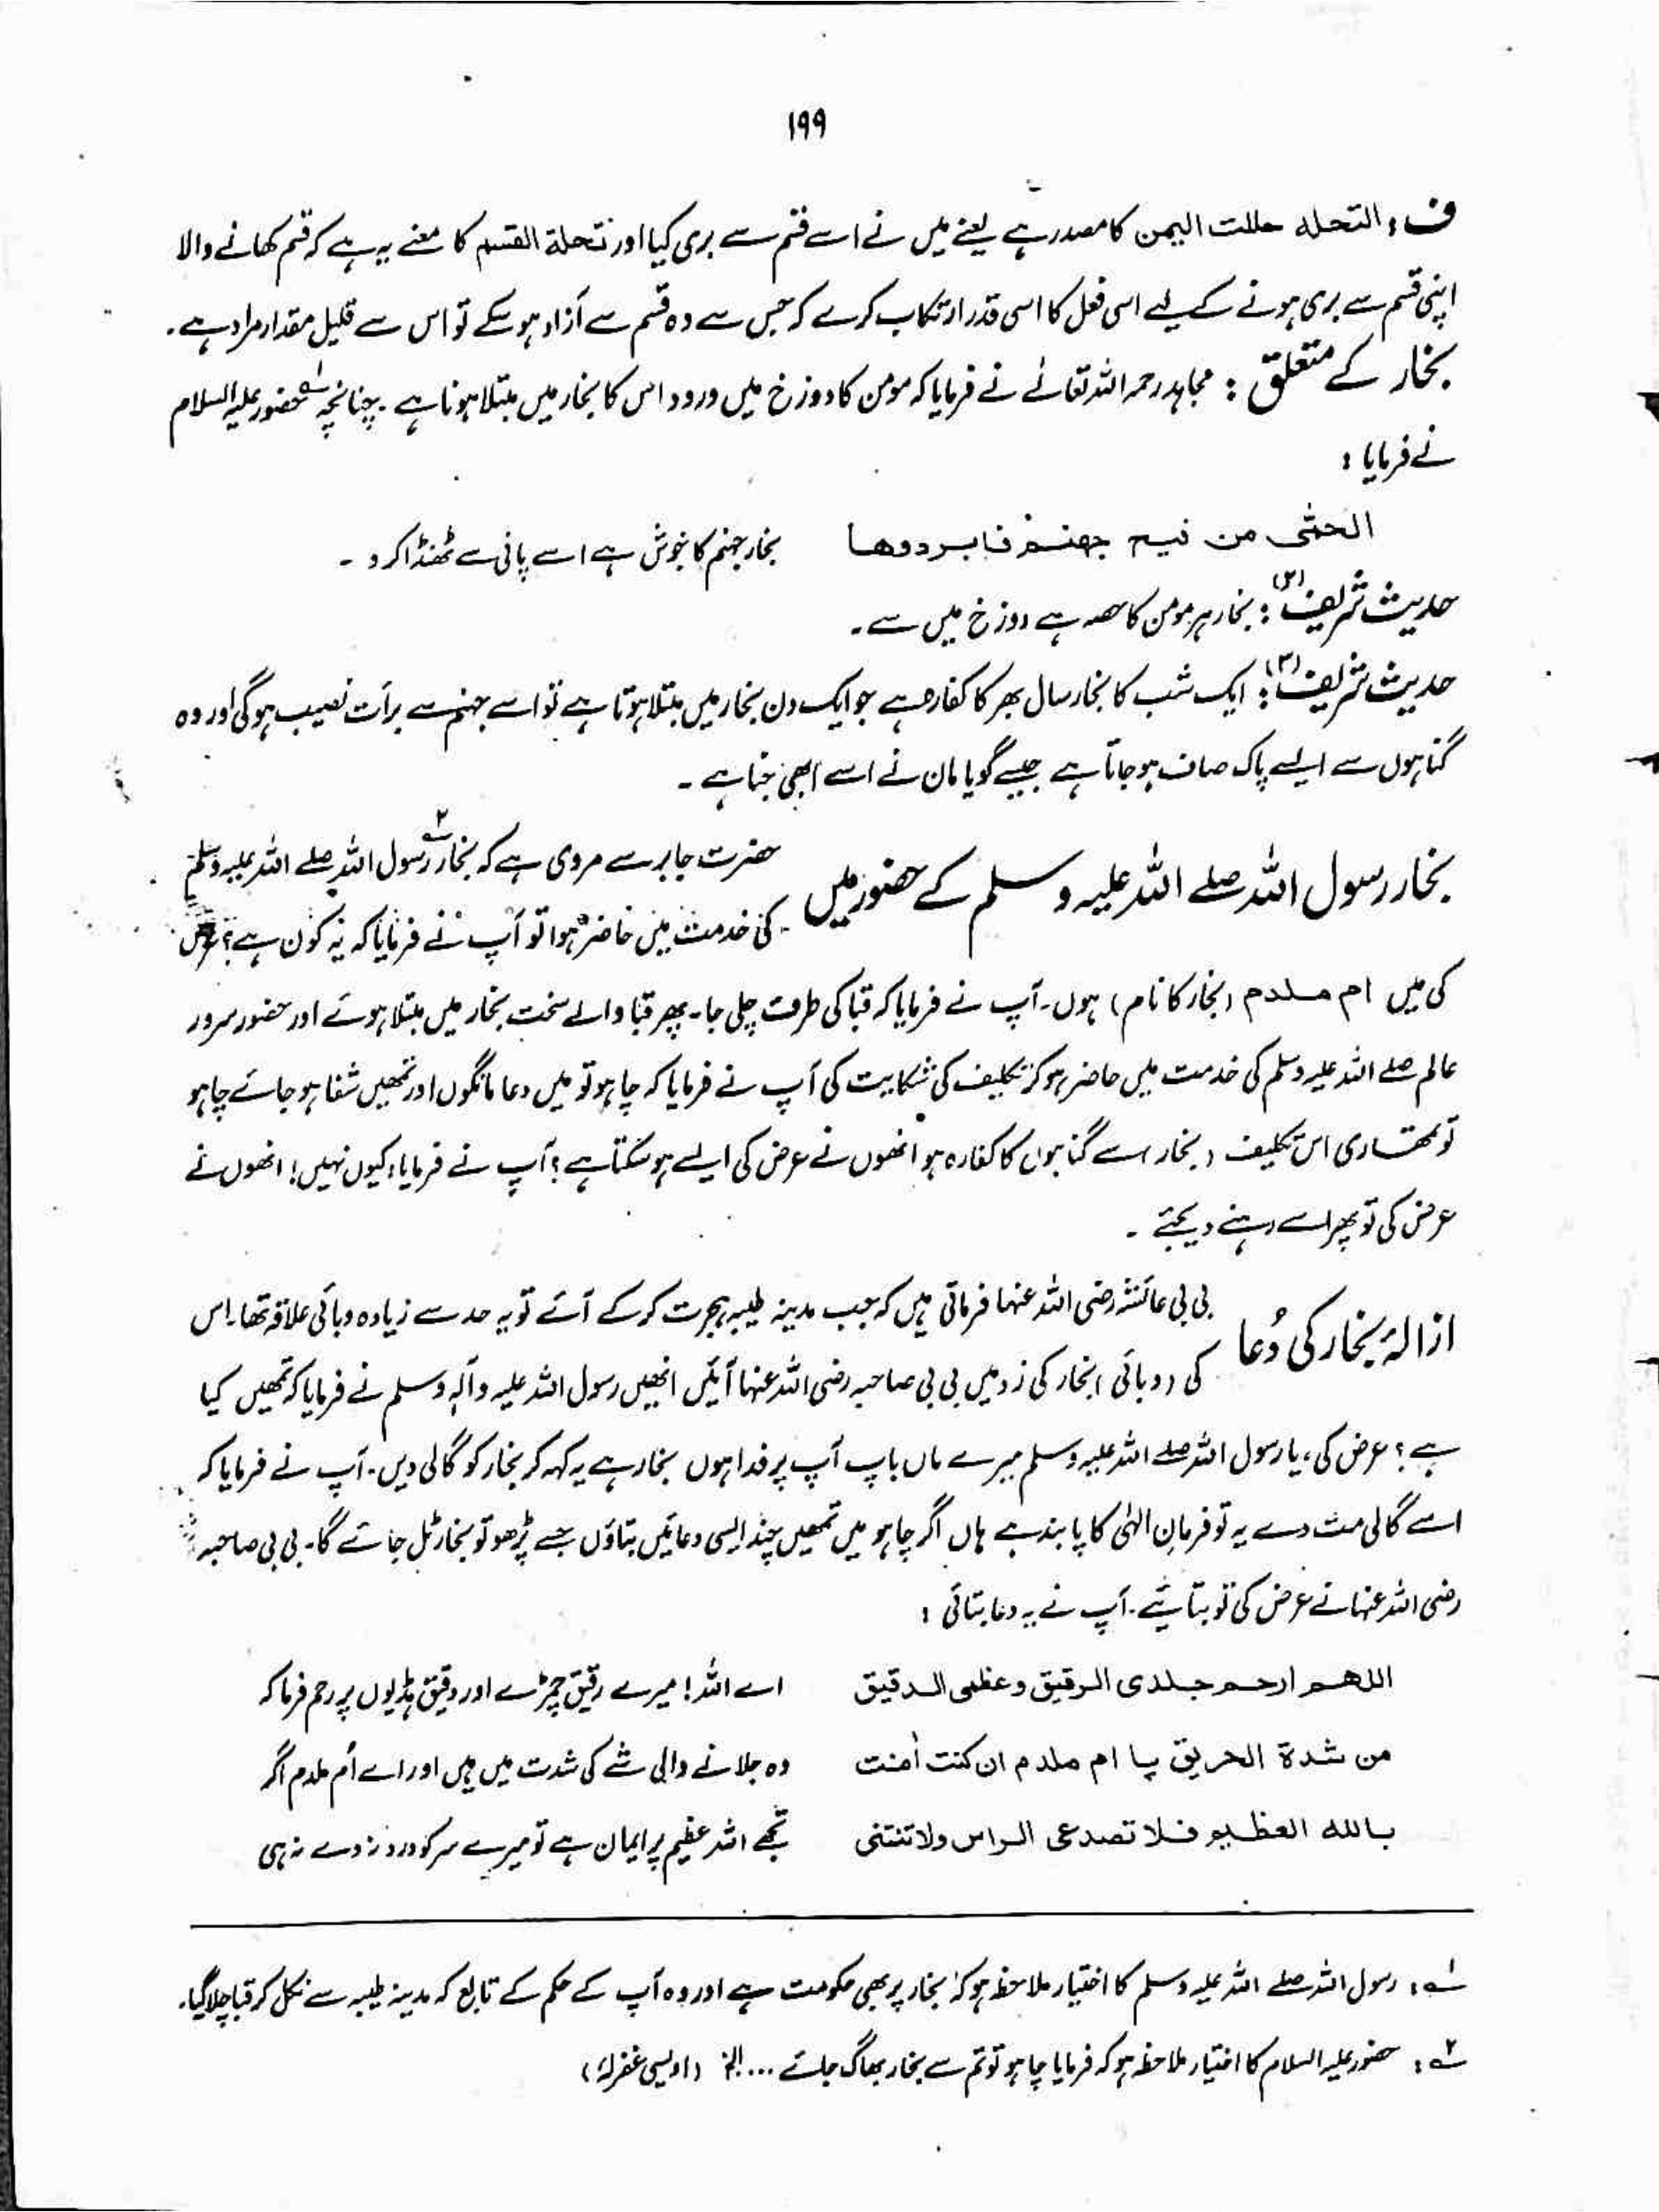 ۱۹۹
ف: التحله حللت الیمن کا مصدر ہے یعنے میں نے اسے قسم سے بری کیا اور تحلة القسم کا معنے یہ ہے کہ قسم کھانے والا
اپنی قسم سے بری ہونے کے لیے اسی فعل کا اسی قدر ارتکاب کرے کہ جس سے وہ قسم سے آزاد ہو سکے تو اس سے قلیل مقدار مراد ہے۔
بخار کے متعلق : مجاہد رحمہ اللہ تعالٰے نے فرمایا کہ مومن کا دوزخ میں ورود اس کا بخار میں مبتلا ہونا ہے۔ چنانچہ ؎۱ حضور علیہ السلام
نے فرمایا :
الحمّٰی من فیح جهنم فابردوها
بخار جہنم کا جوش ہے اسے پانی سے ٹھنڈا کرو۔
حدیث شریف (۲) : بخار ہر مومن کا حصہ ہے دوزخ میں سے۔
حدیث شریف (۳) : ایک شب کا بخار سال بھر کا کفارہ ہے جو ایک دن بخار میں مبتلا ہوتا ہے تو اسے جہنم سے برأت نصیب ہو گی اور وہ
گناہوں سے ایسے پاک صاف ہو جاتا ہے جیسے گویا ماں نے اسے ابھی جنا ہے۔
بخار رسول اللہ صلے اللہ علیہ وسلم کے حضور میں
حضرت جابر سے مروی ہے کہ بخار ؎۲ رسول اللہ صلے اللہ علیہ وسلم
کی خدمت میں حاضر ہوا تو آپ نے فرمایا کہ یہ کون ہے؟ عرض
کی میں ام ملدم (بخار کا نام) ہوں۔ آپ نے فرمایا کہ قبا کی طرف چلی جا۔ پھر قبا والے سخت بخار میں مبتلا ہوئے اور حضور سرور
عالم صلے اللہ علیہ وسلم کی خدمت میں حاضر ہو کر تکلیف کی شکایت کی آپ نے فرمایا کہ چاہو تو میں دعا مانگوں اور تمھیں شفا ہو جائے چاہو
تو تمھاری اس تکلیف (بخار) سے گناہوں کا کفارہ ہو انھوں نے عرض کی ایسے ہو سکتا ہے؟ آپ نے فرمایا، کیوں نہیں! انھوں نے
عرض کی تو پھر اسے رہنے دیجئے۔
ازالۂ بخار کی دُعا
بی بی عائشہ رضی اللہ عنہا فرماتی ہیں کہ جب مدینہ طیبہ ہجرت کر کے آئے تو یہ حد سے زیادہ وبائی علاقہ تھا۔ اس
کی (وبائی) بخار کی زد میں بی بی صاحبہ رضی اللہ عنہا آئیں انھیں رسول اللہ علیہ وآلہٖ وسلم نے فرمایا کہ تمھیں کیا
ہے؟ عرض کی، یا رسول اللہ صلے اللہ علیہ وسلم میرے ماں باپ آپ پر فدا ہوں بخار ہے یہ کہہ کر بخار کو گالی دیں۔ آپ نے فرمایا کہ
اسے گالی مت دے یہ تو فرمانِ الٰہی کا پابند ہے ہاں اگر چاہو میں تمھیں چند ایسی دعائیں بتاؤں جسے پڑھو تو بخار ٹل جائے گا۔ بی بی صاحبہ
رضی اللہ عنہا نے عرض کی تو بتائیے۔ آپ نے یہ دعا بتائی :
اللهم ارحم جلدی الرقیق وعظمی الدقیق
اے اللہ! میرے رقیق چمڑے اور دقیق ہڈیوں پر رحم فرما کہ
من شدة الحریق یا ام ملدم ان کنت اٰمنت
وہ جلانے والی شے کی شدت میں ہیں اور اے اُم ملدم اگر
بالله العظیم فلا تصدعی الراس ولا تنتنی
تجھے اللہ عظیم پر ایمان ہے تو میرے سر کو درد نہ دے نہ ہی
؎۱ : رسول اللہ صلے اللہ علیہ وسلم کا اختیار ملاحظہ ہو کہ بخار پر بھی حکومت ہے اور وہ آپ کے حکم کے تابع کہ مدینہ طیبہ سے نکل کر قبا چلا گیا۔
؎۲ : حضور علیہ السلام کا اختیار ملاحظہ ہو کہ فرمایا چاہو تو تم سے بخار بھاگ جائے ... الخ (اویسی غفرلہٗ)